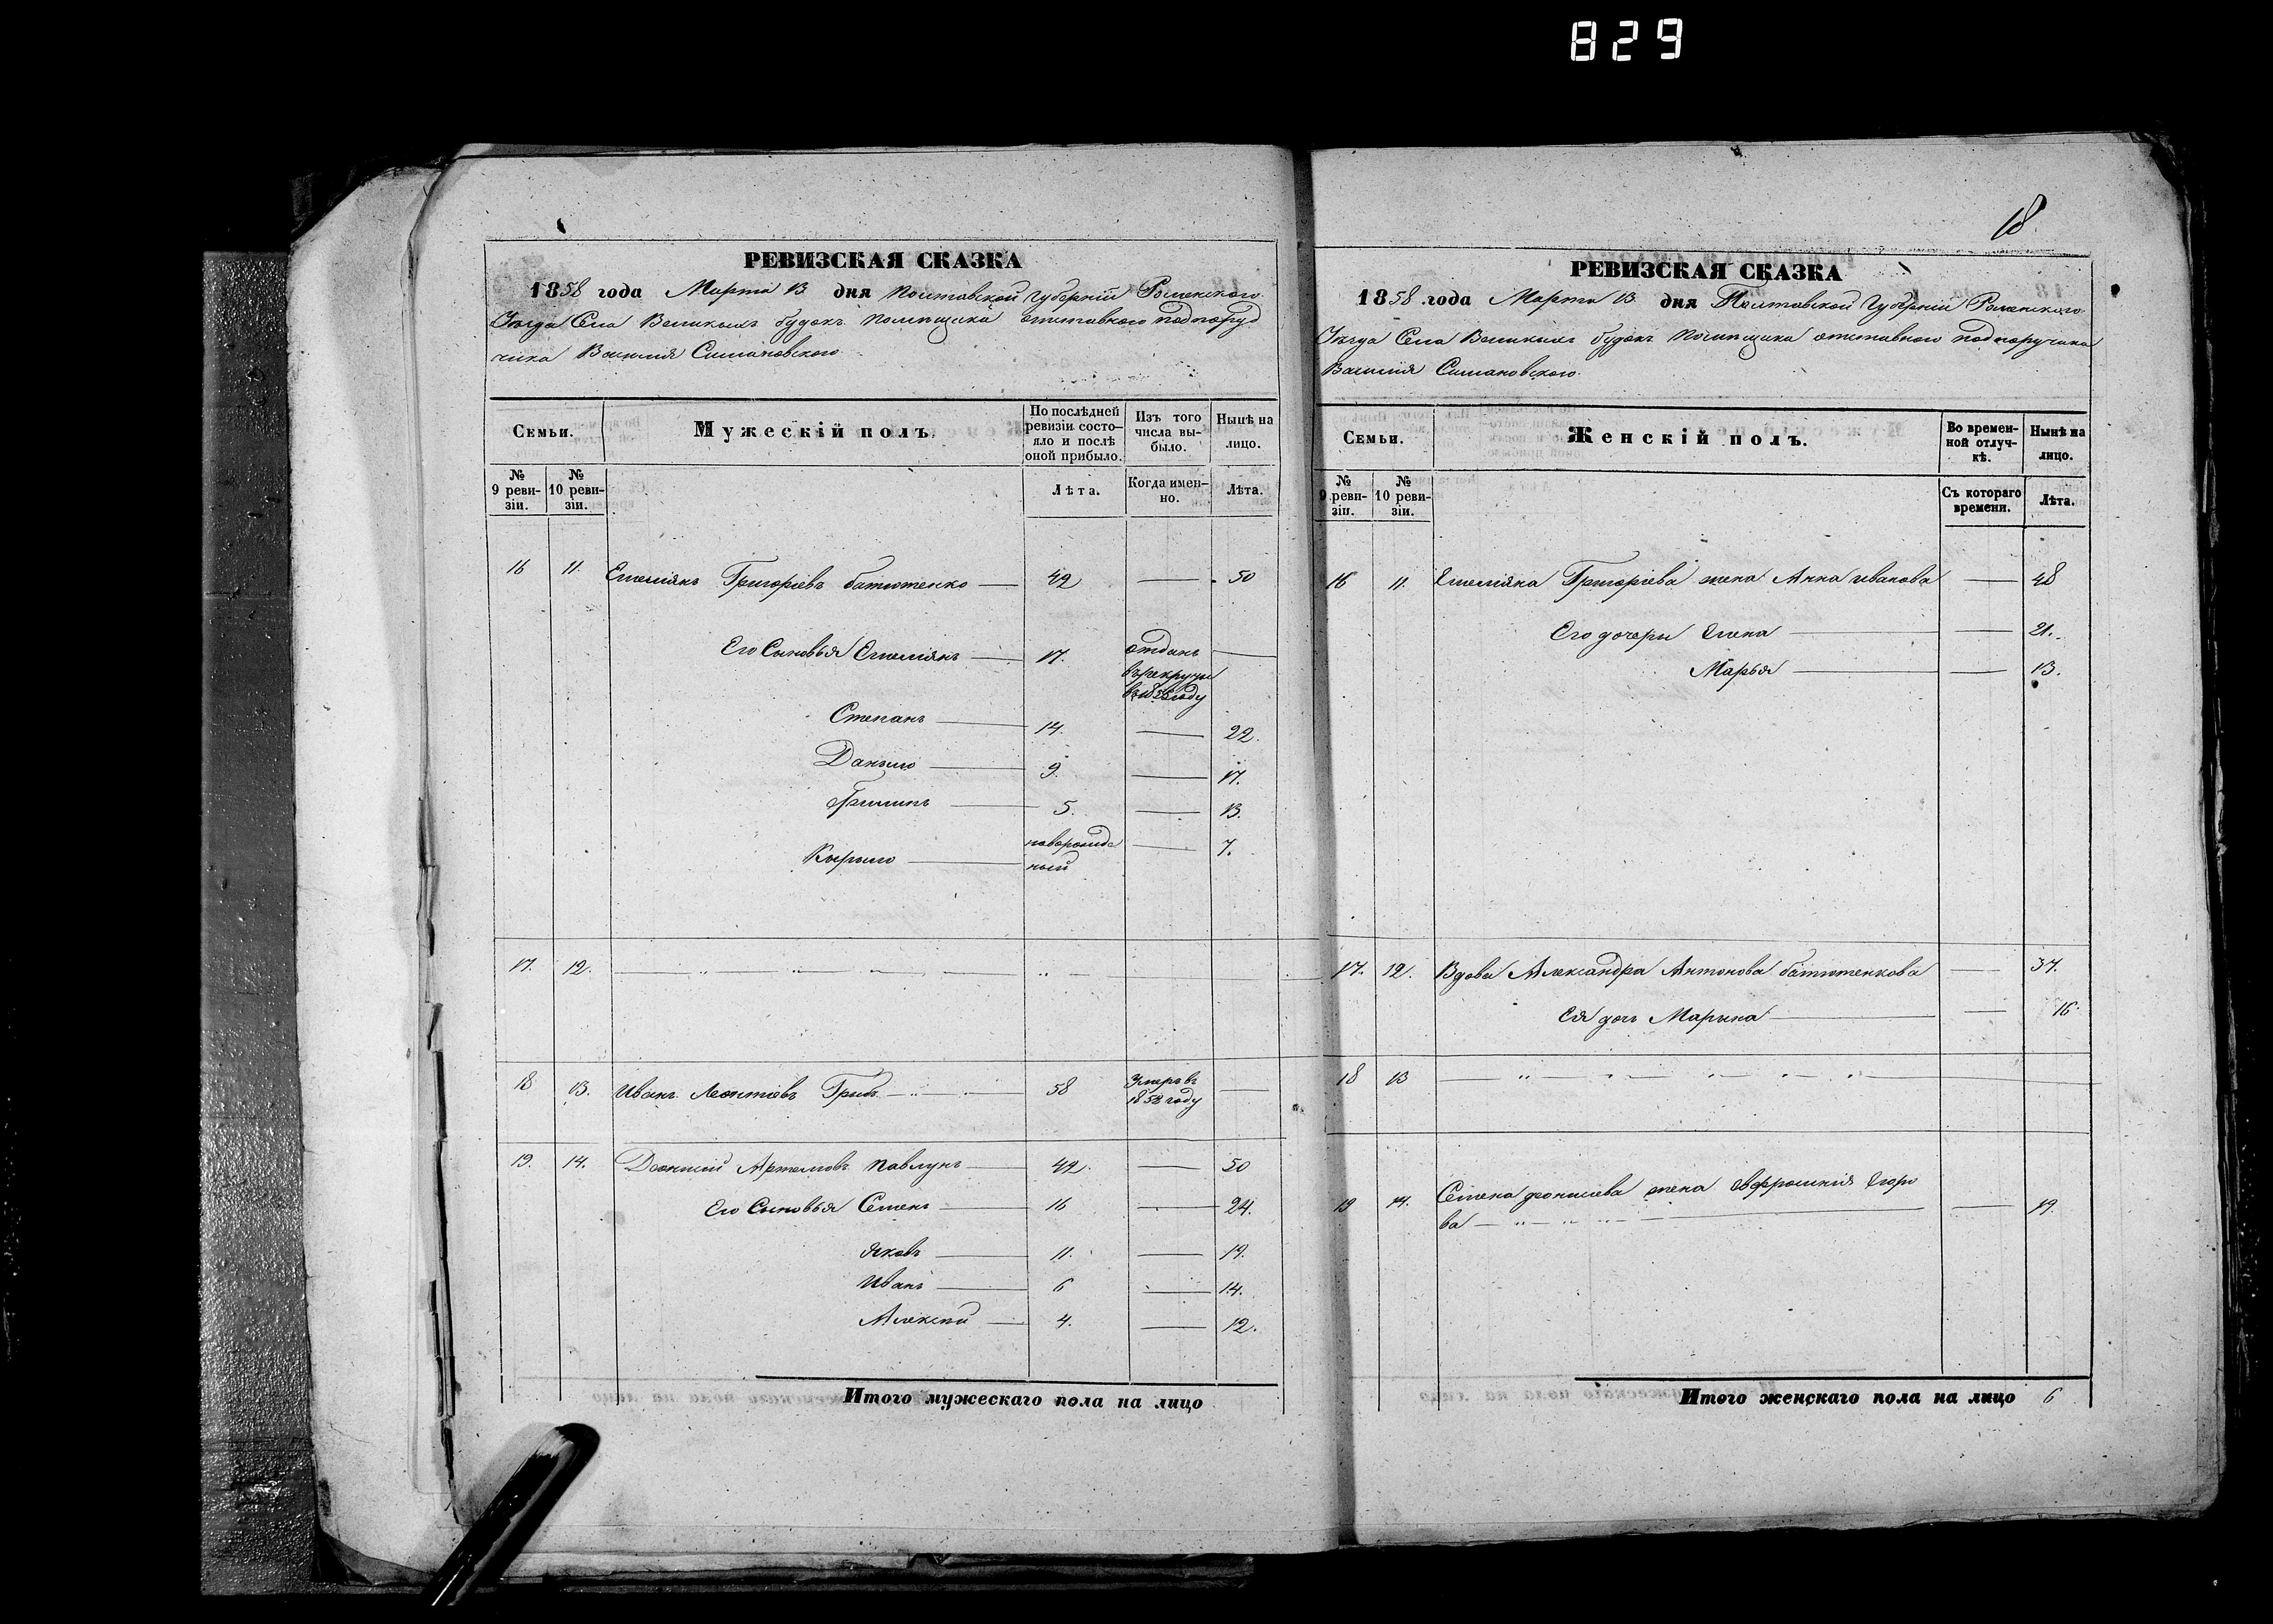 829
18.
РЕВИЗСКАЯ СКАЗКА
1858 года Марта 13 дня Полтавской губерніи Роменского
Уезда Села Великихъ будокъ помещика отставного подпору
чика Василія Симановского
Семьи.
Мужескій полъ.
По послѣдней ревизіи состо-
яло и послѣ оной прибыло.
Изъ того числа вы-
было.
Нынѣ на лицо.
№ 9 реви-
зіи.
№ 10 реви-
зіи.
Лѣта.
Когда имен-
но.
Лѣта.
16 11. Емеліянъ Григоріевъ батютенко 42 50
Его Сыновья Емеліянъ 17. отданъ
въ рекруты
году
Степанъ 14. 22.
Даныло 9. 17.
Филипъ 5. 13.
Кырыло новорожде 7.
ный
17. 12.
18 13. Иванъ Леонтіевъ Грибъ 58 Умеръ въ
1858 году
19. 14. Деонисій Артемовъ Павлунъ 42. 50
Его Сыновья Семенъ 16 24.
Яковъ 11. 19.
Иванъ 6 14.
Алексий 4. 12.
Итого мужескаго пола на лицо
РЕВИЗСКАЯ СКАЗКА
1858 года Марта 13 дня Полтавской Губерніи Роменского
Уезда Села Великихъ будокъ Помещика отставного подпоручика
Василія Симановского.
Семьи.
Женскій полъ.
Во времен-
ной отлуч-
кѣ.
Нынѣ на лицо.
№ 9 реви-
зіи.
№ 10 реви-
зіи.
Съ котораго
времени.
Лѣта.
16 11. Емеліяна Григоріева жена Анна иванова 48
Его дочеры Елена 21.
Марья 13.
17. 12. Вдова Александра Антонова батютенкова 37.
Ея дочь Марына 16.
18 13
19 14. Семена деонисіева жена Евфросинія Егоро
ва 19.
Итого женскаго пола на лицо 6